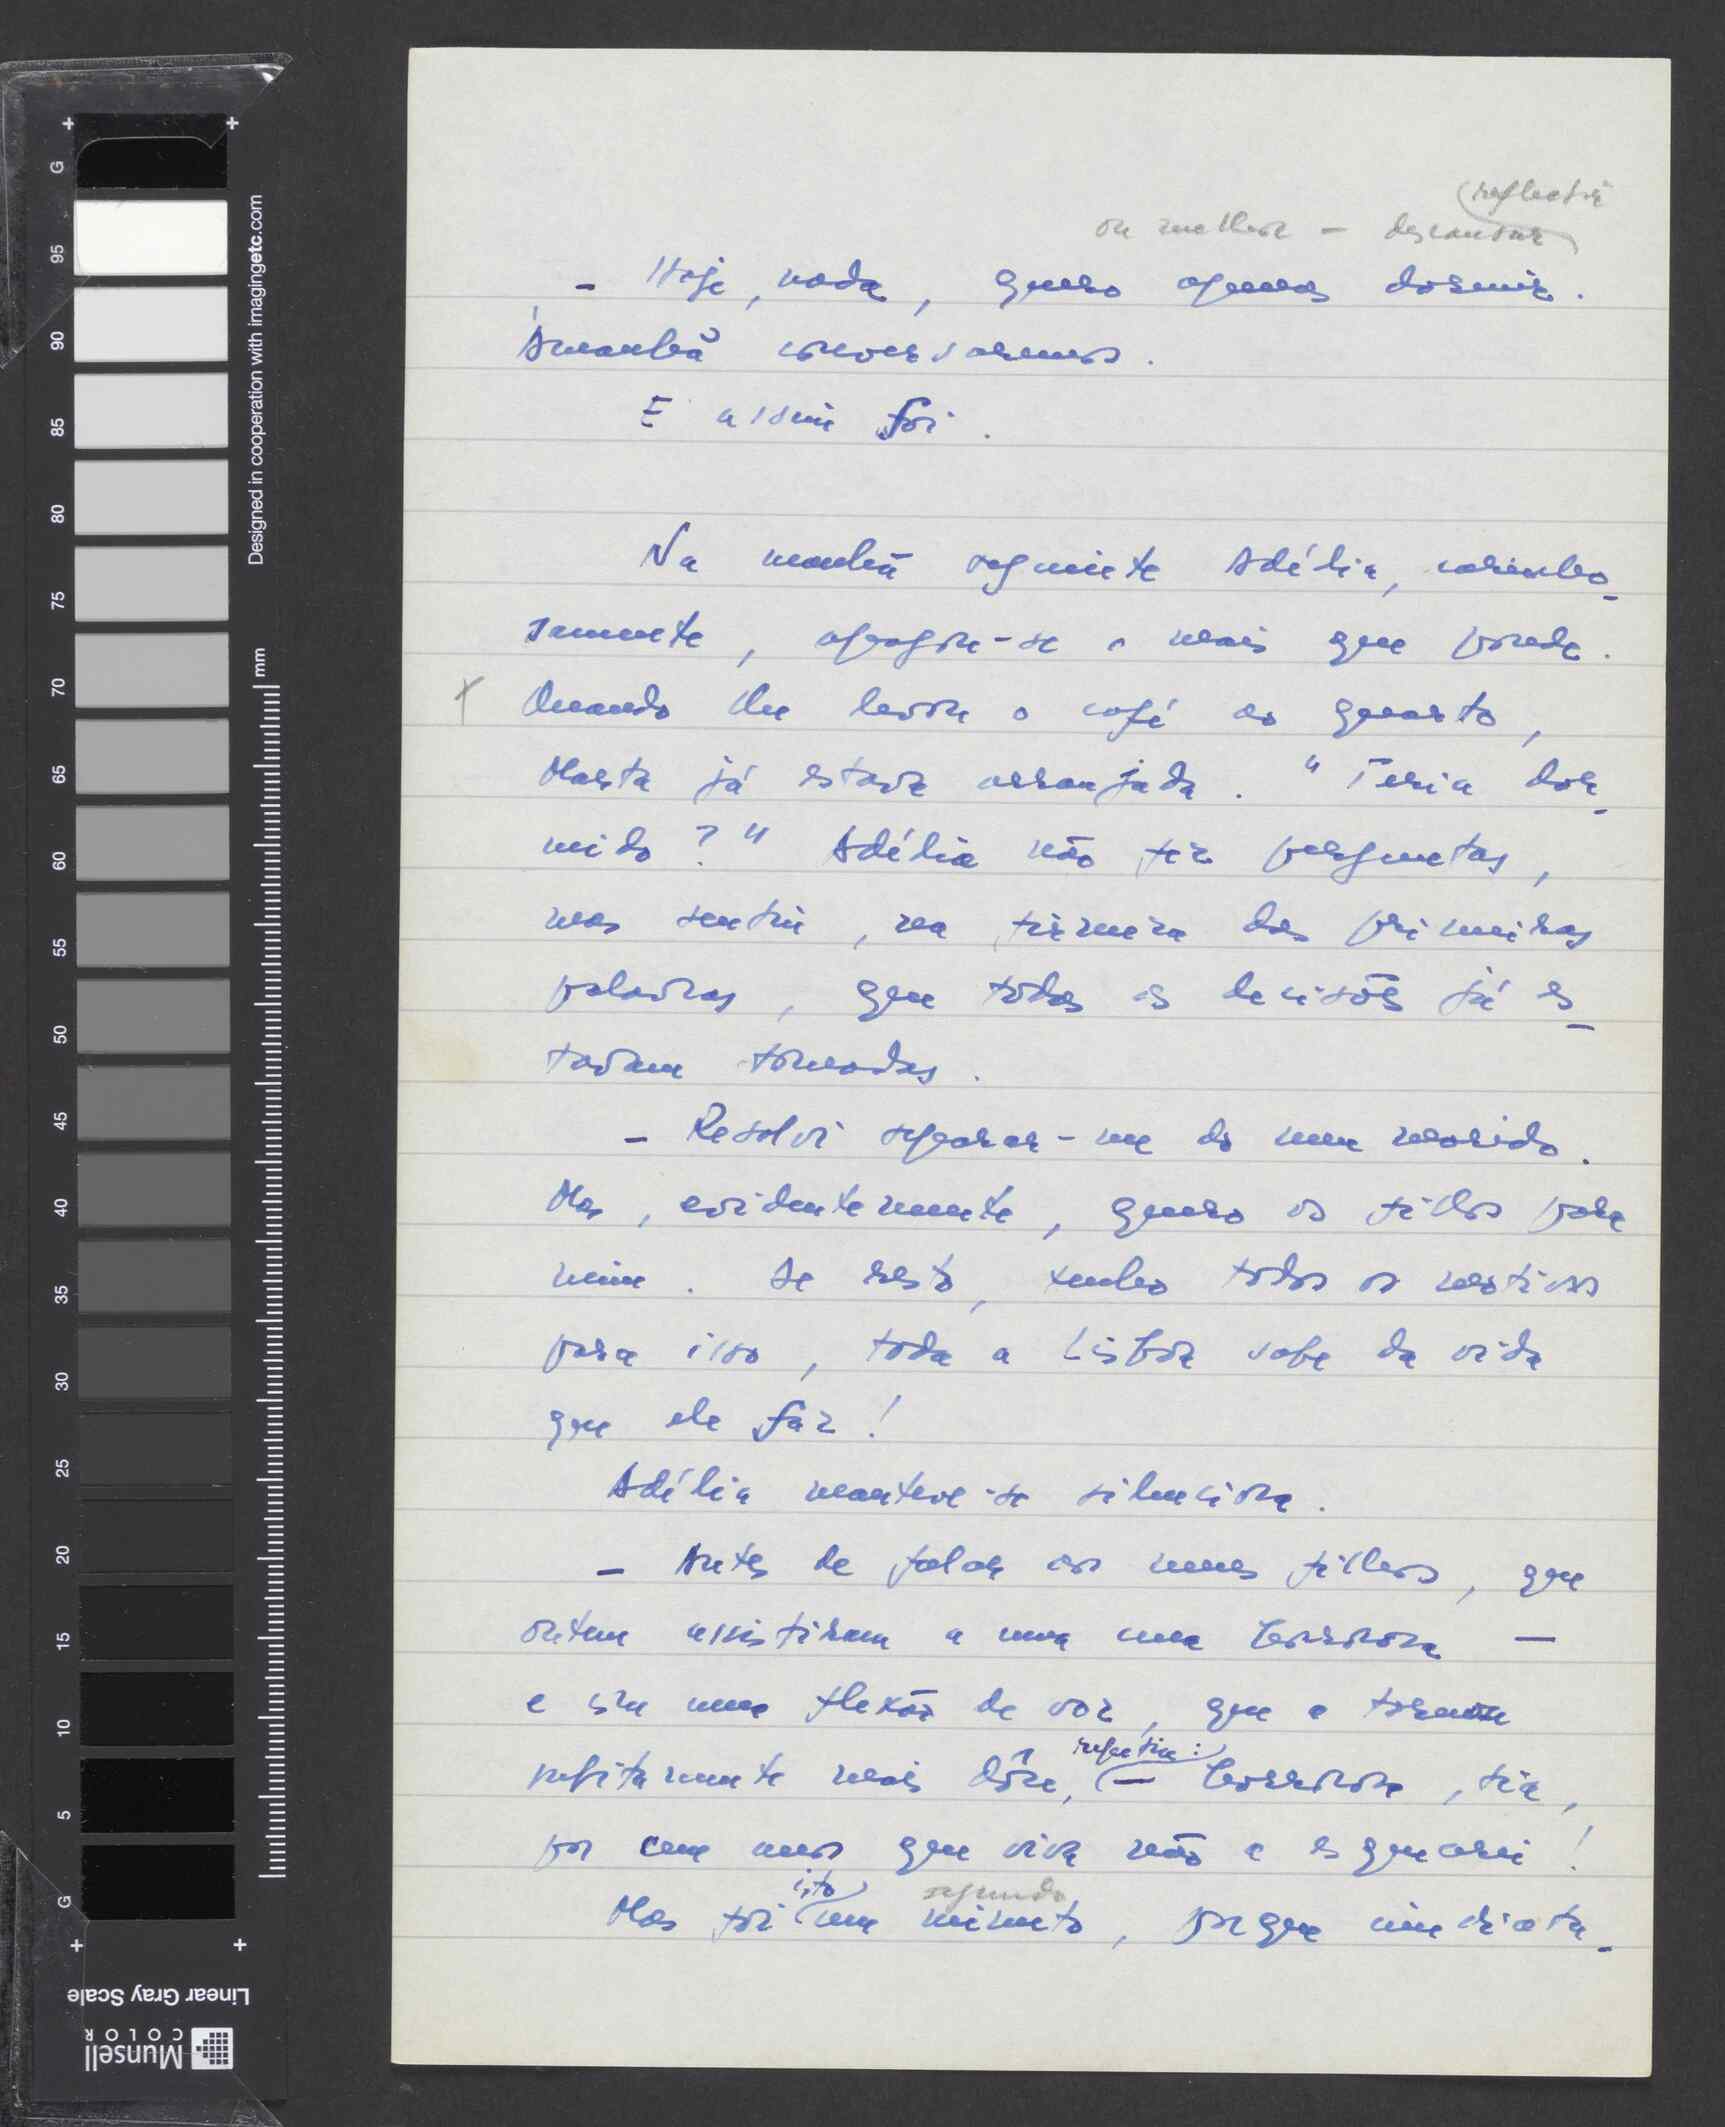 reflectir
ou melhor – descansar
– Hoje, nada, quero apenas dormir.
Amanhã conversaremos.
E assim foi.
Na manhã seguinte Adélia, carinho-
samente, apagou-se o mais que poude.
x Quando lhe levou o café ao quarto,
Marta já estava arranjada. "Teria dor-
mido?" Adélia não fez perguntas,
mas sentiu, na firmeza das primeiras
palavras, que todas as decisões já es-
tavam tomadas.
– Resolvi separar-me do meu marido.
Mas, evidentemente, quero os filhos para
mim. De resto, tenho todos os motivos
para isso, toda a Lisboa sabe da vida
que ele faz!
Adélia manteve-se silenciosa.
– Antes de falar aos meus filhos, que
ontem assistiram a uma cena horrorosa —
e com uma flexão de voz, que a tornou
subitamente mais dôce, repetiu: — horrorosa, tia,
por cem anos que viva não a esquecerei!
Mas foi isto um minuto, segundo porque imediata-
G 95 90 85 80 75 70 65 60 55 50 45 40 35 30 25 20 15 10 5 G
mm
Designed in cooperation with imagingetc.com
Linear Gray Scale
Munsell
COLOR